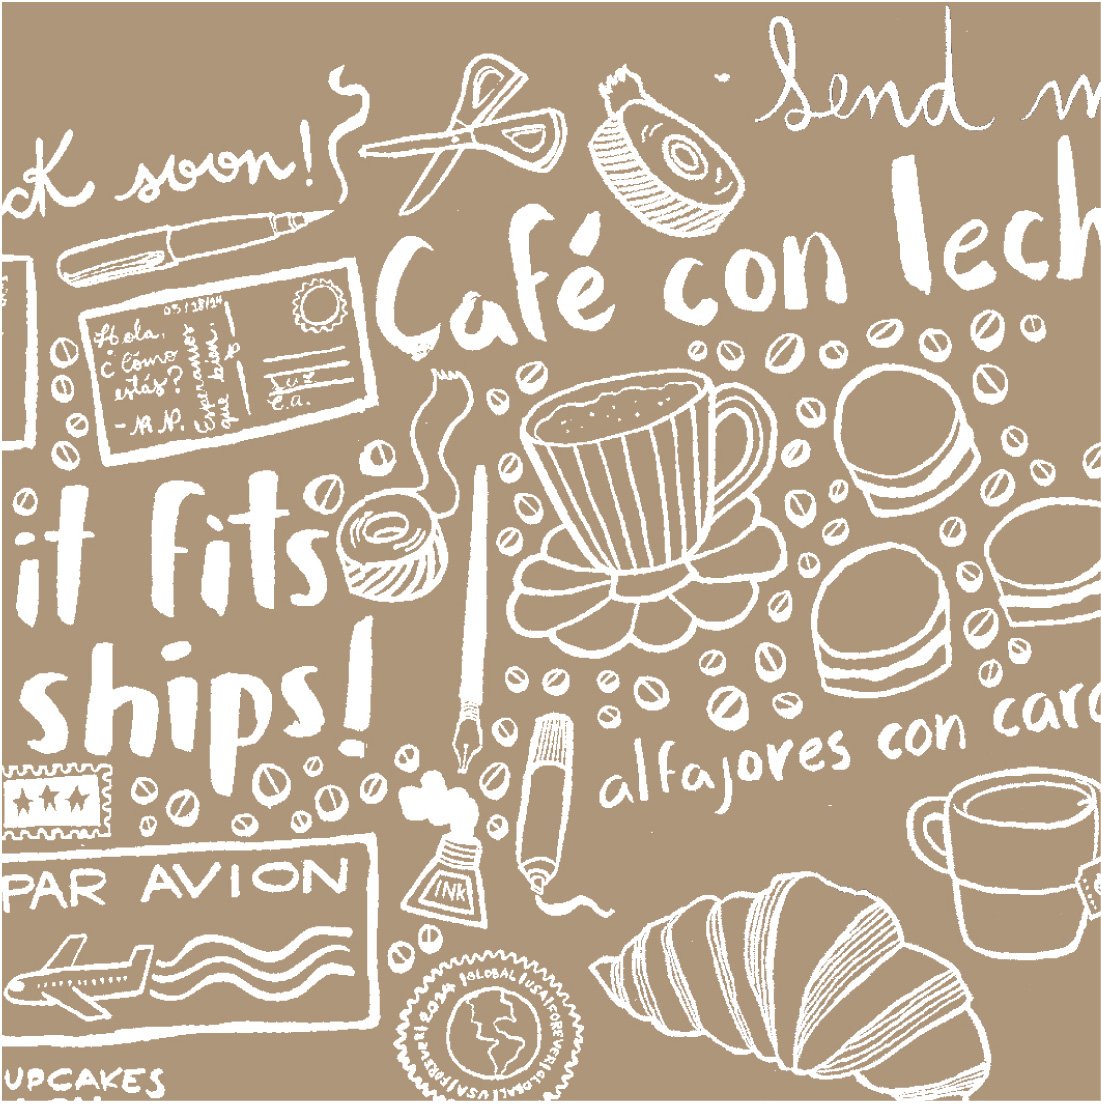 Send
ck soon!
Café con lech
03/28/24
Hola,
¿Cómo
estás?
- N.P.
Esperamos
que bien.
it fits
ships!
alfajores con cara
PAR AVION
INK
GLOBAL|USA|FOREVER|GLOBAL|USA|FOREVER|2024
UPCAKES